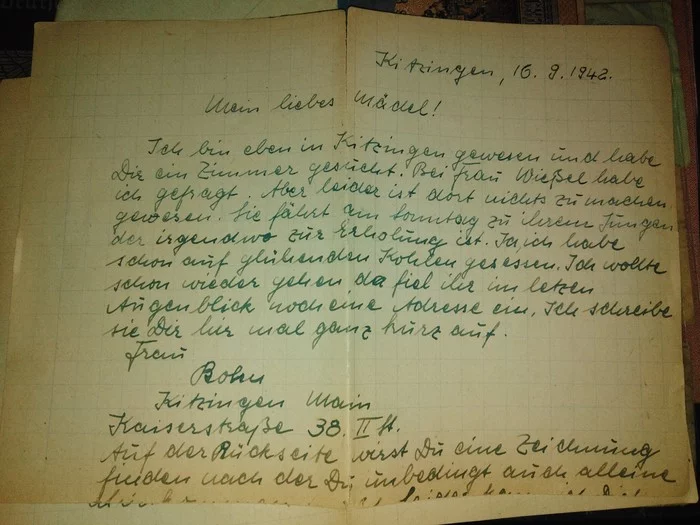 Kitzingen, 16. 9. 1942.
Mein liebes Mädel!
Ich bin eben in Kitzingen gewesen und habe
Dir ein Zimmer gesucht. Bei Frau Wießel habe
ich gefragt. Aber leider ist dort nichts zu machen
gewesen. Sie fährt am Sonntag zu ihrem Jungen
der irgendwo zur Erholung ist. Ja ich habe
schon auf glühenden Kohlen gesessen. Ich wollte
schon wieder gehen, da fiel ihr im letzen
Augenblick noch eine Adresse ein. Ich schreibe
sie Dir hir mal ganz kurz auf.
Frau
Bohn
Kitzingen Main
Kaiserstraße 38. II St.
Auf der Rückseite wirst Du eine Zeichnung
finden nach der Du unbedingt auch alleine